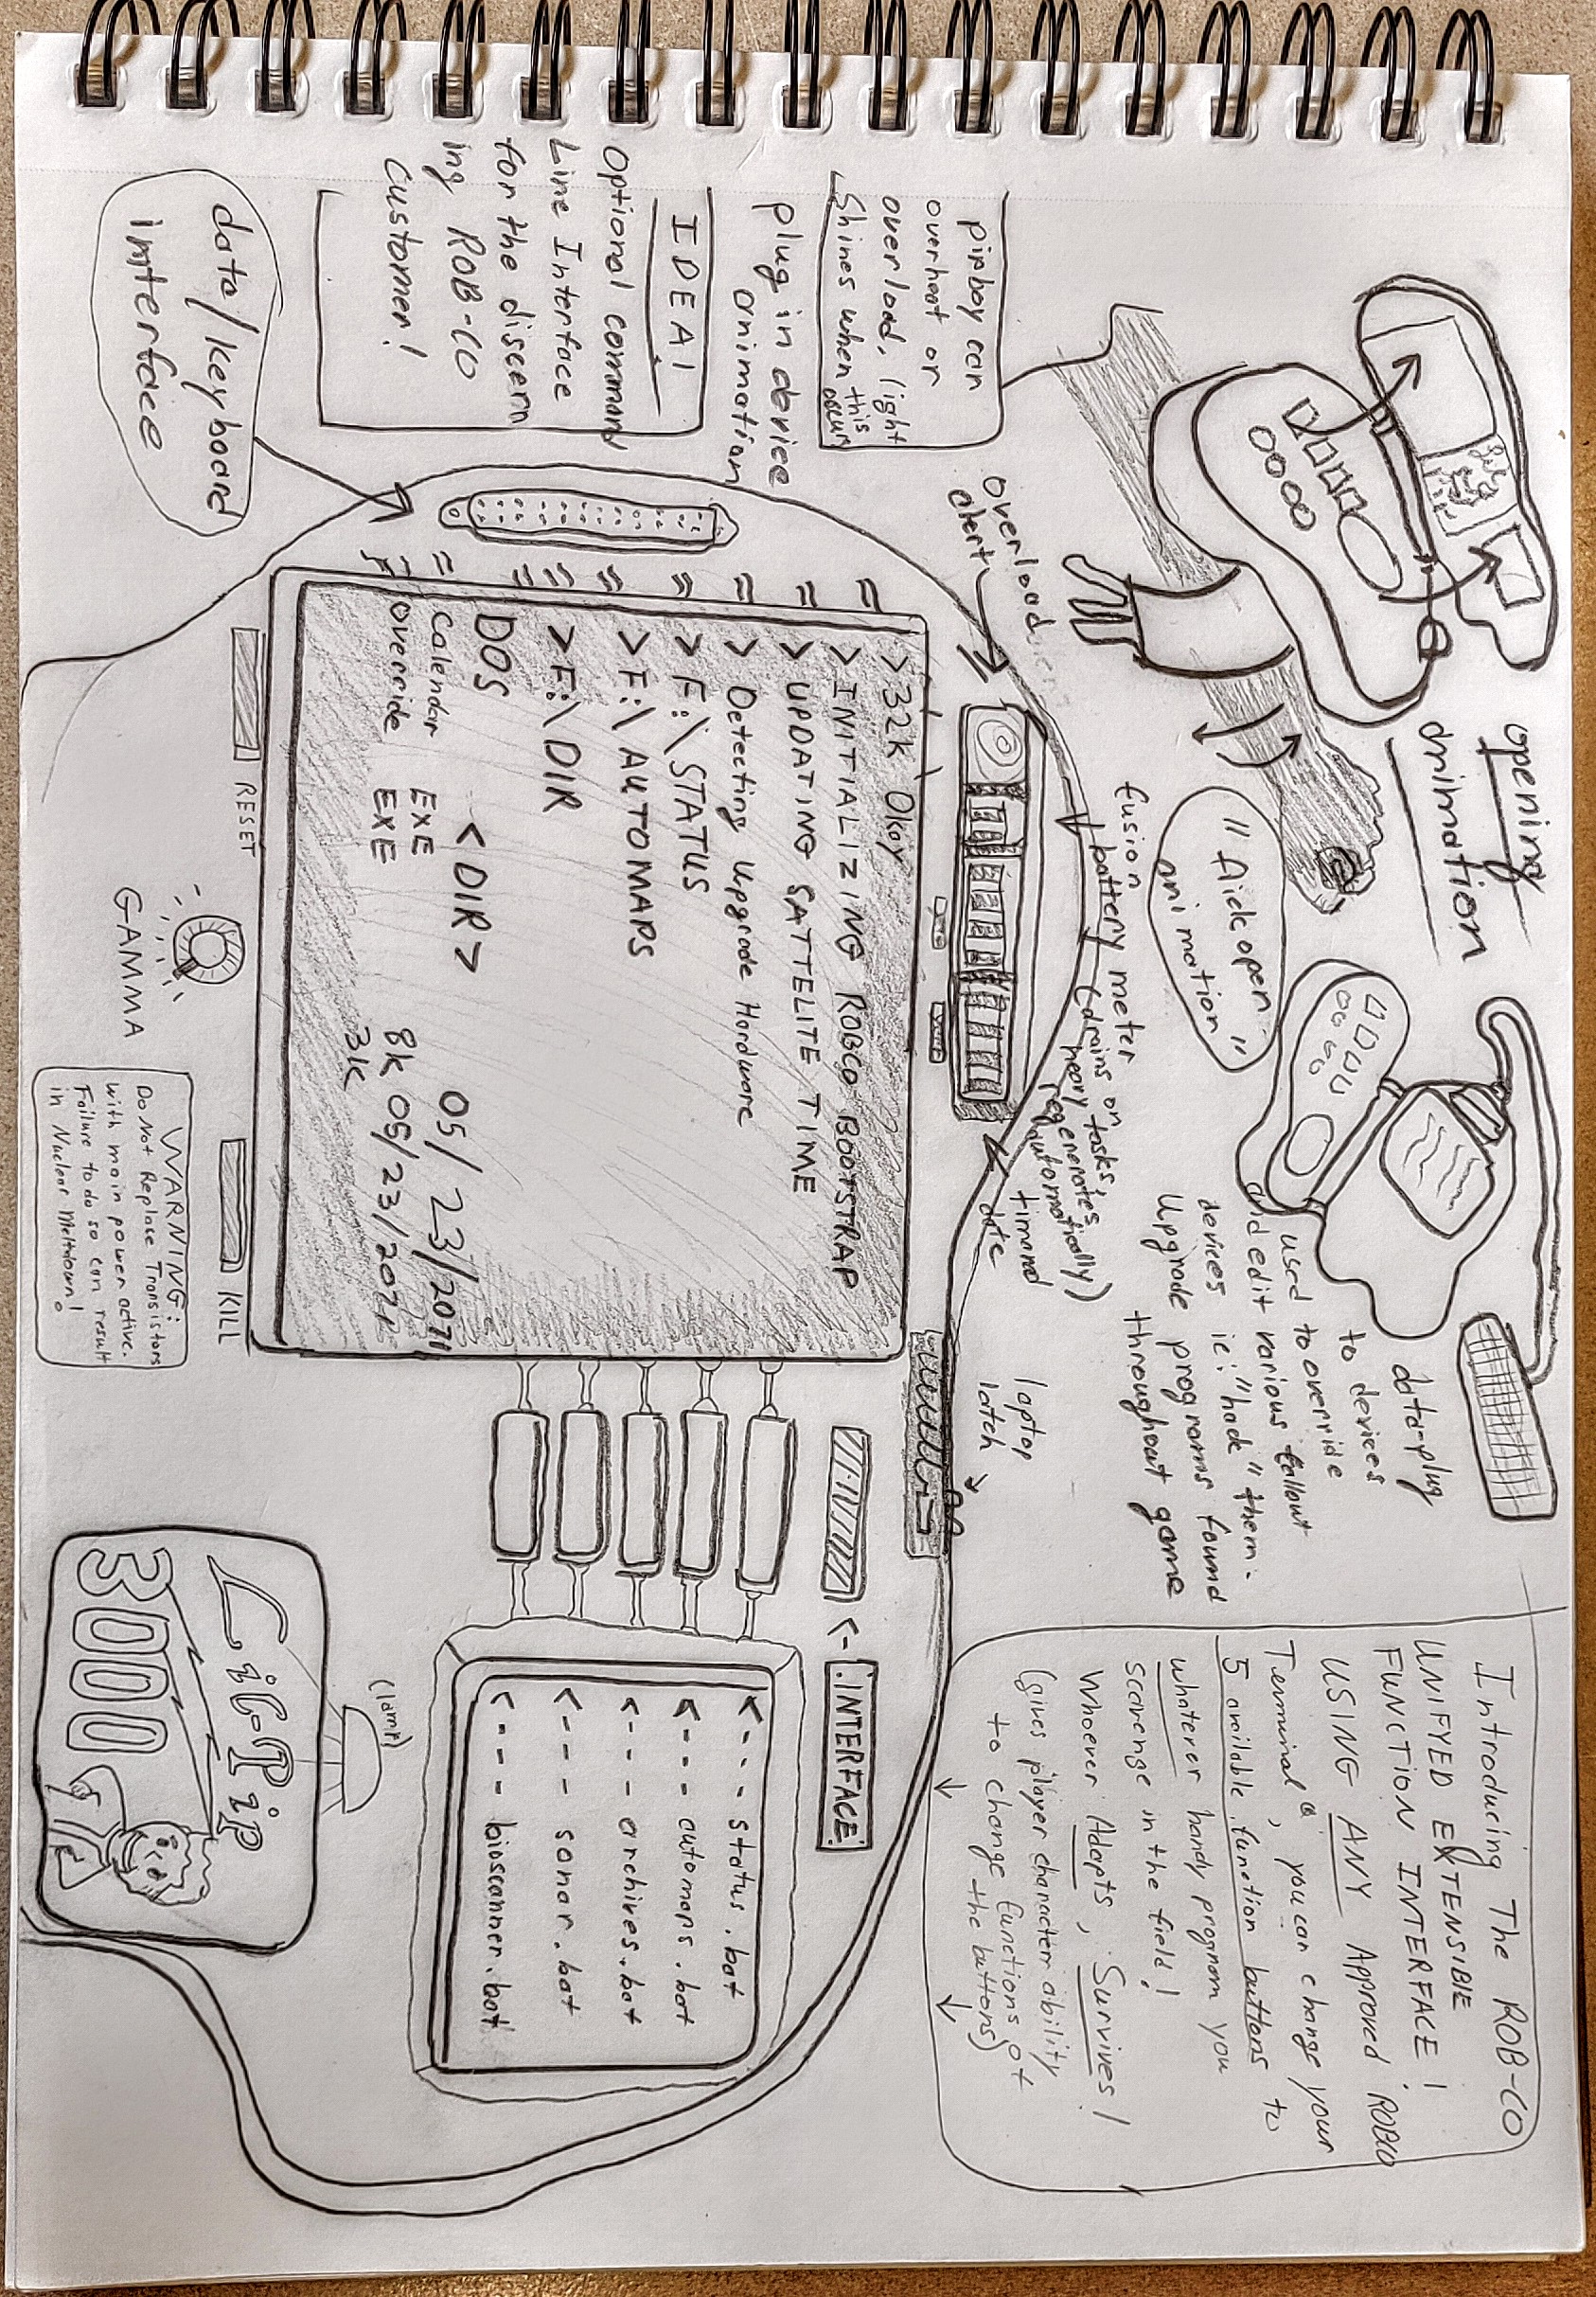 opening
animation
"flick open"
animation"
pipboy can
overheat or
overload, light
Shines when this
occurs
plug in device
animation
IDEA!
Optional command
Line Interface
for the discern
ing ROB-CO
Customer!
data/keyboard
interface
overload
alert
fusion
battery meter
(drains on
heavy tasks,
regenerates
automatically)
time and
date
laptop
latch
data-plug
to devices
used to override
and edit various fallout
devices ie: "hack" them.
Upgrade programs found
throughout game
Introducing The ROB-CO
UNIFYED EXTENSIBLE
FUNCTION INTERFACE!
USING ANY Approved ROBCO
Terminal®, you can change your
5 available function buttons to
whatever handy program you
scavenge in the field!
Whoever Adapts, Survives!
(gives player character ability
to change functions of
the buttons)
>32k Okay
>INITIALIZING ROBCO BOOTSTRAP
>UPDATING SATTELITE TIME
> Detecting Upgrade Hardware
>F:\STATUS
>F:\AUTOMAPS
>F:\DIR
DOS <DIR> 05/23/2071
Calendar EXE 8k 05/23/2071
override EXE 3k
RESET
GAMMA
KILL
WARNING:
Do Not Replace Transistors
with main power active.
Failure to do so can result
in Nuclear Meltdown!
<- .INTERFACE.
<--- status.bat
<--- automaps.bat
<--- archives.bat
<--- sonar.bat
<--- bioscanner.bat
(lamp)
Lil-Pip
3000